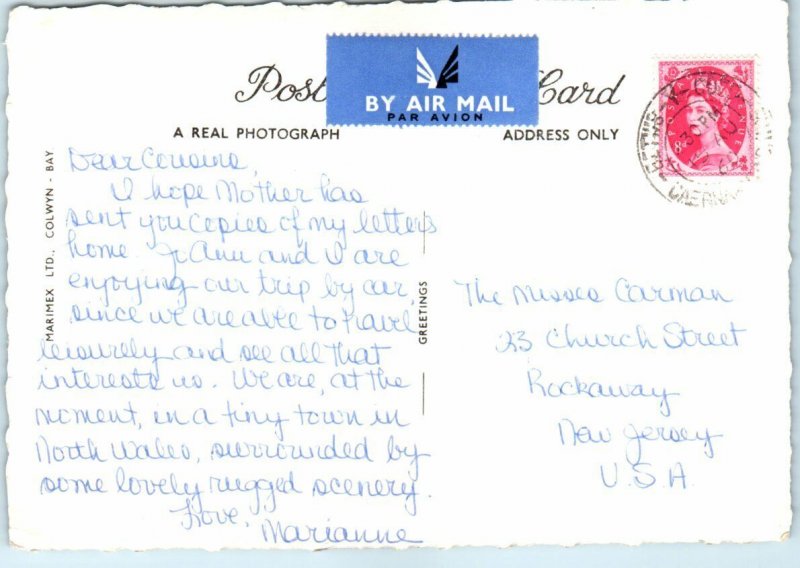 Post Card
BY AIR MAIL
PAR AVION
A REAL PHOTOGRAPH
ADDRESS ONLY
MARIMEX LTD., COLWYN - BAY
GREETINGS
Dear Cousins,
I hope Mother has
sent you copies of my letters
home. JoAnn and I are
enjoying our trip by car,
since we are able to travel
leisurely and see all that
interests us. We are, at the
moment, in a tiny town in
North Wales, surrounded by
some lovely rugged scenery.
Love,
Marianne
The Misses Carman
23 Church Street
Rockaway
New Jersey
U.S.A.
BETTWS-Y-CO
30 PM
AU
CAERNA
8D
POSTAGE
REVENUE